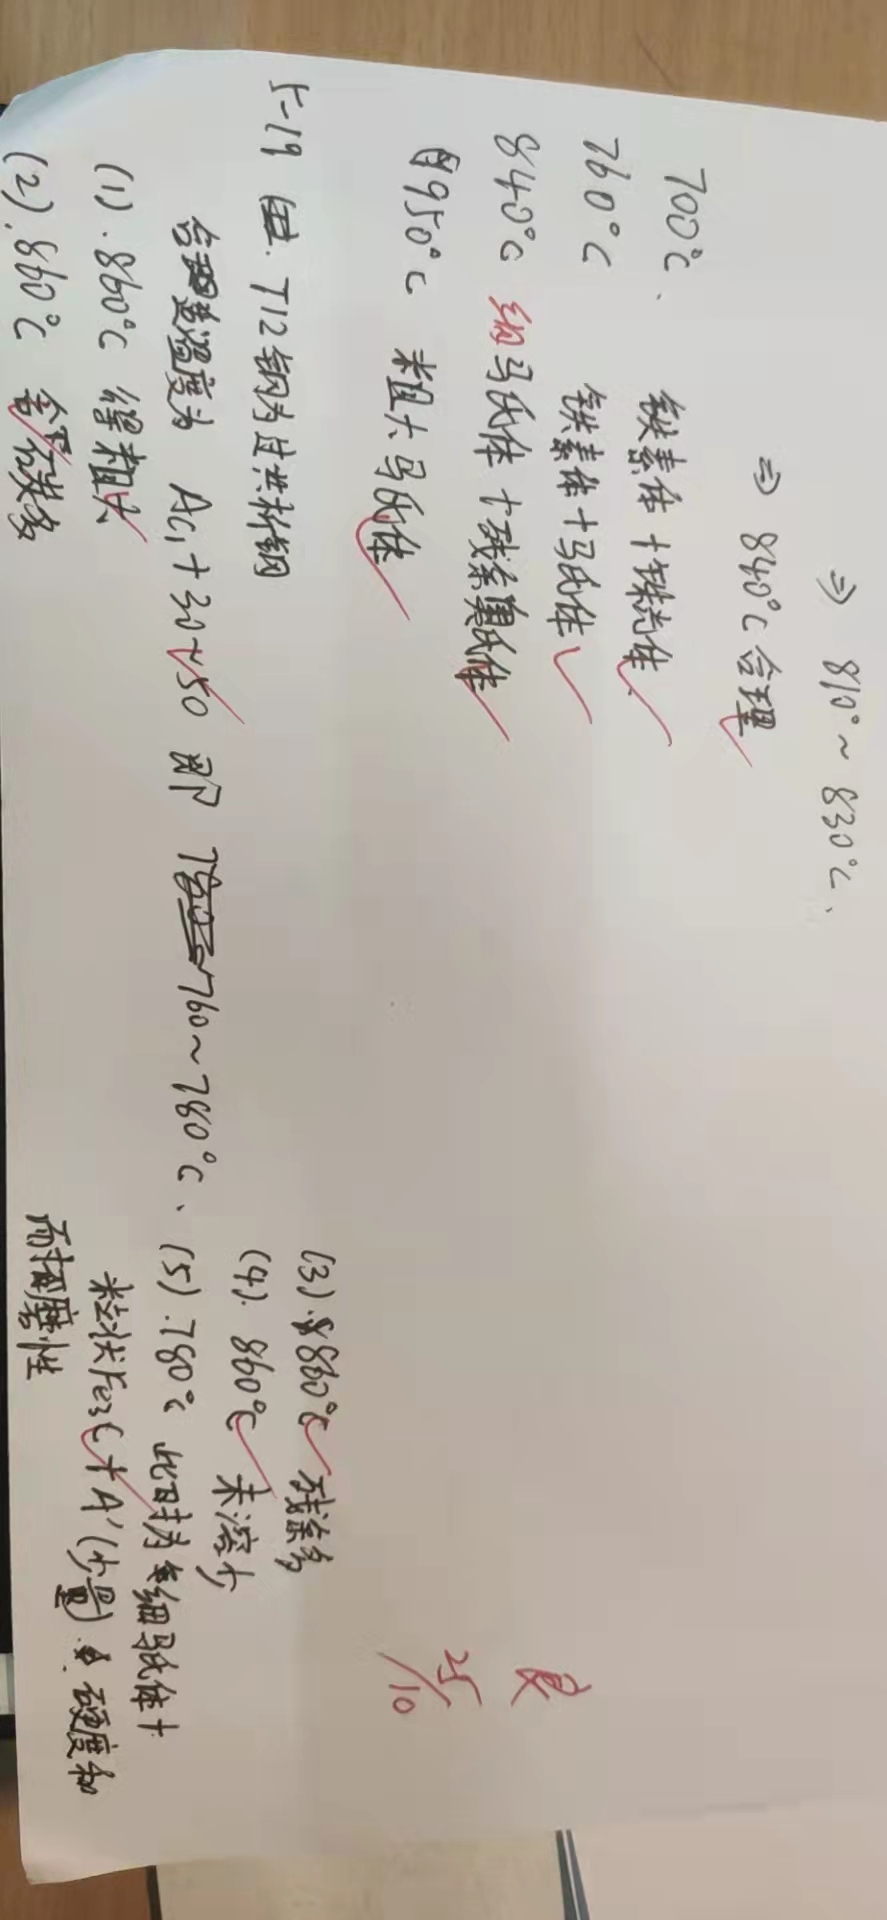 ⇒ 810°~830℃、
⇒ 840℃合理
700℃、 铁素体+珠光体
760℃ 铁素体+马氏体
840℃ 细马氏体+残余奥氏体
950℃ 粗大马氏体
5-19 T12钢为过共析钢
合适温度为 Ac₁+30~50 即 760~780℃、
(1).860℃ 得粗大
(2).860℃ 含碳多
(3).860℃ 残余多
(4).860℃ 未溶少
(5).780℃ 此时为细马氏体+
粒状Fe₃C+A'(少量) 硬度和
耐磨性
良
25/10